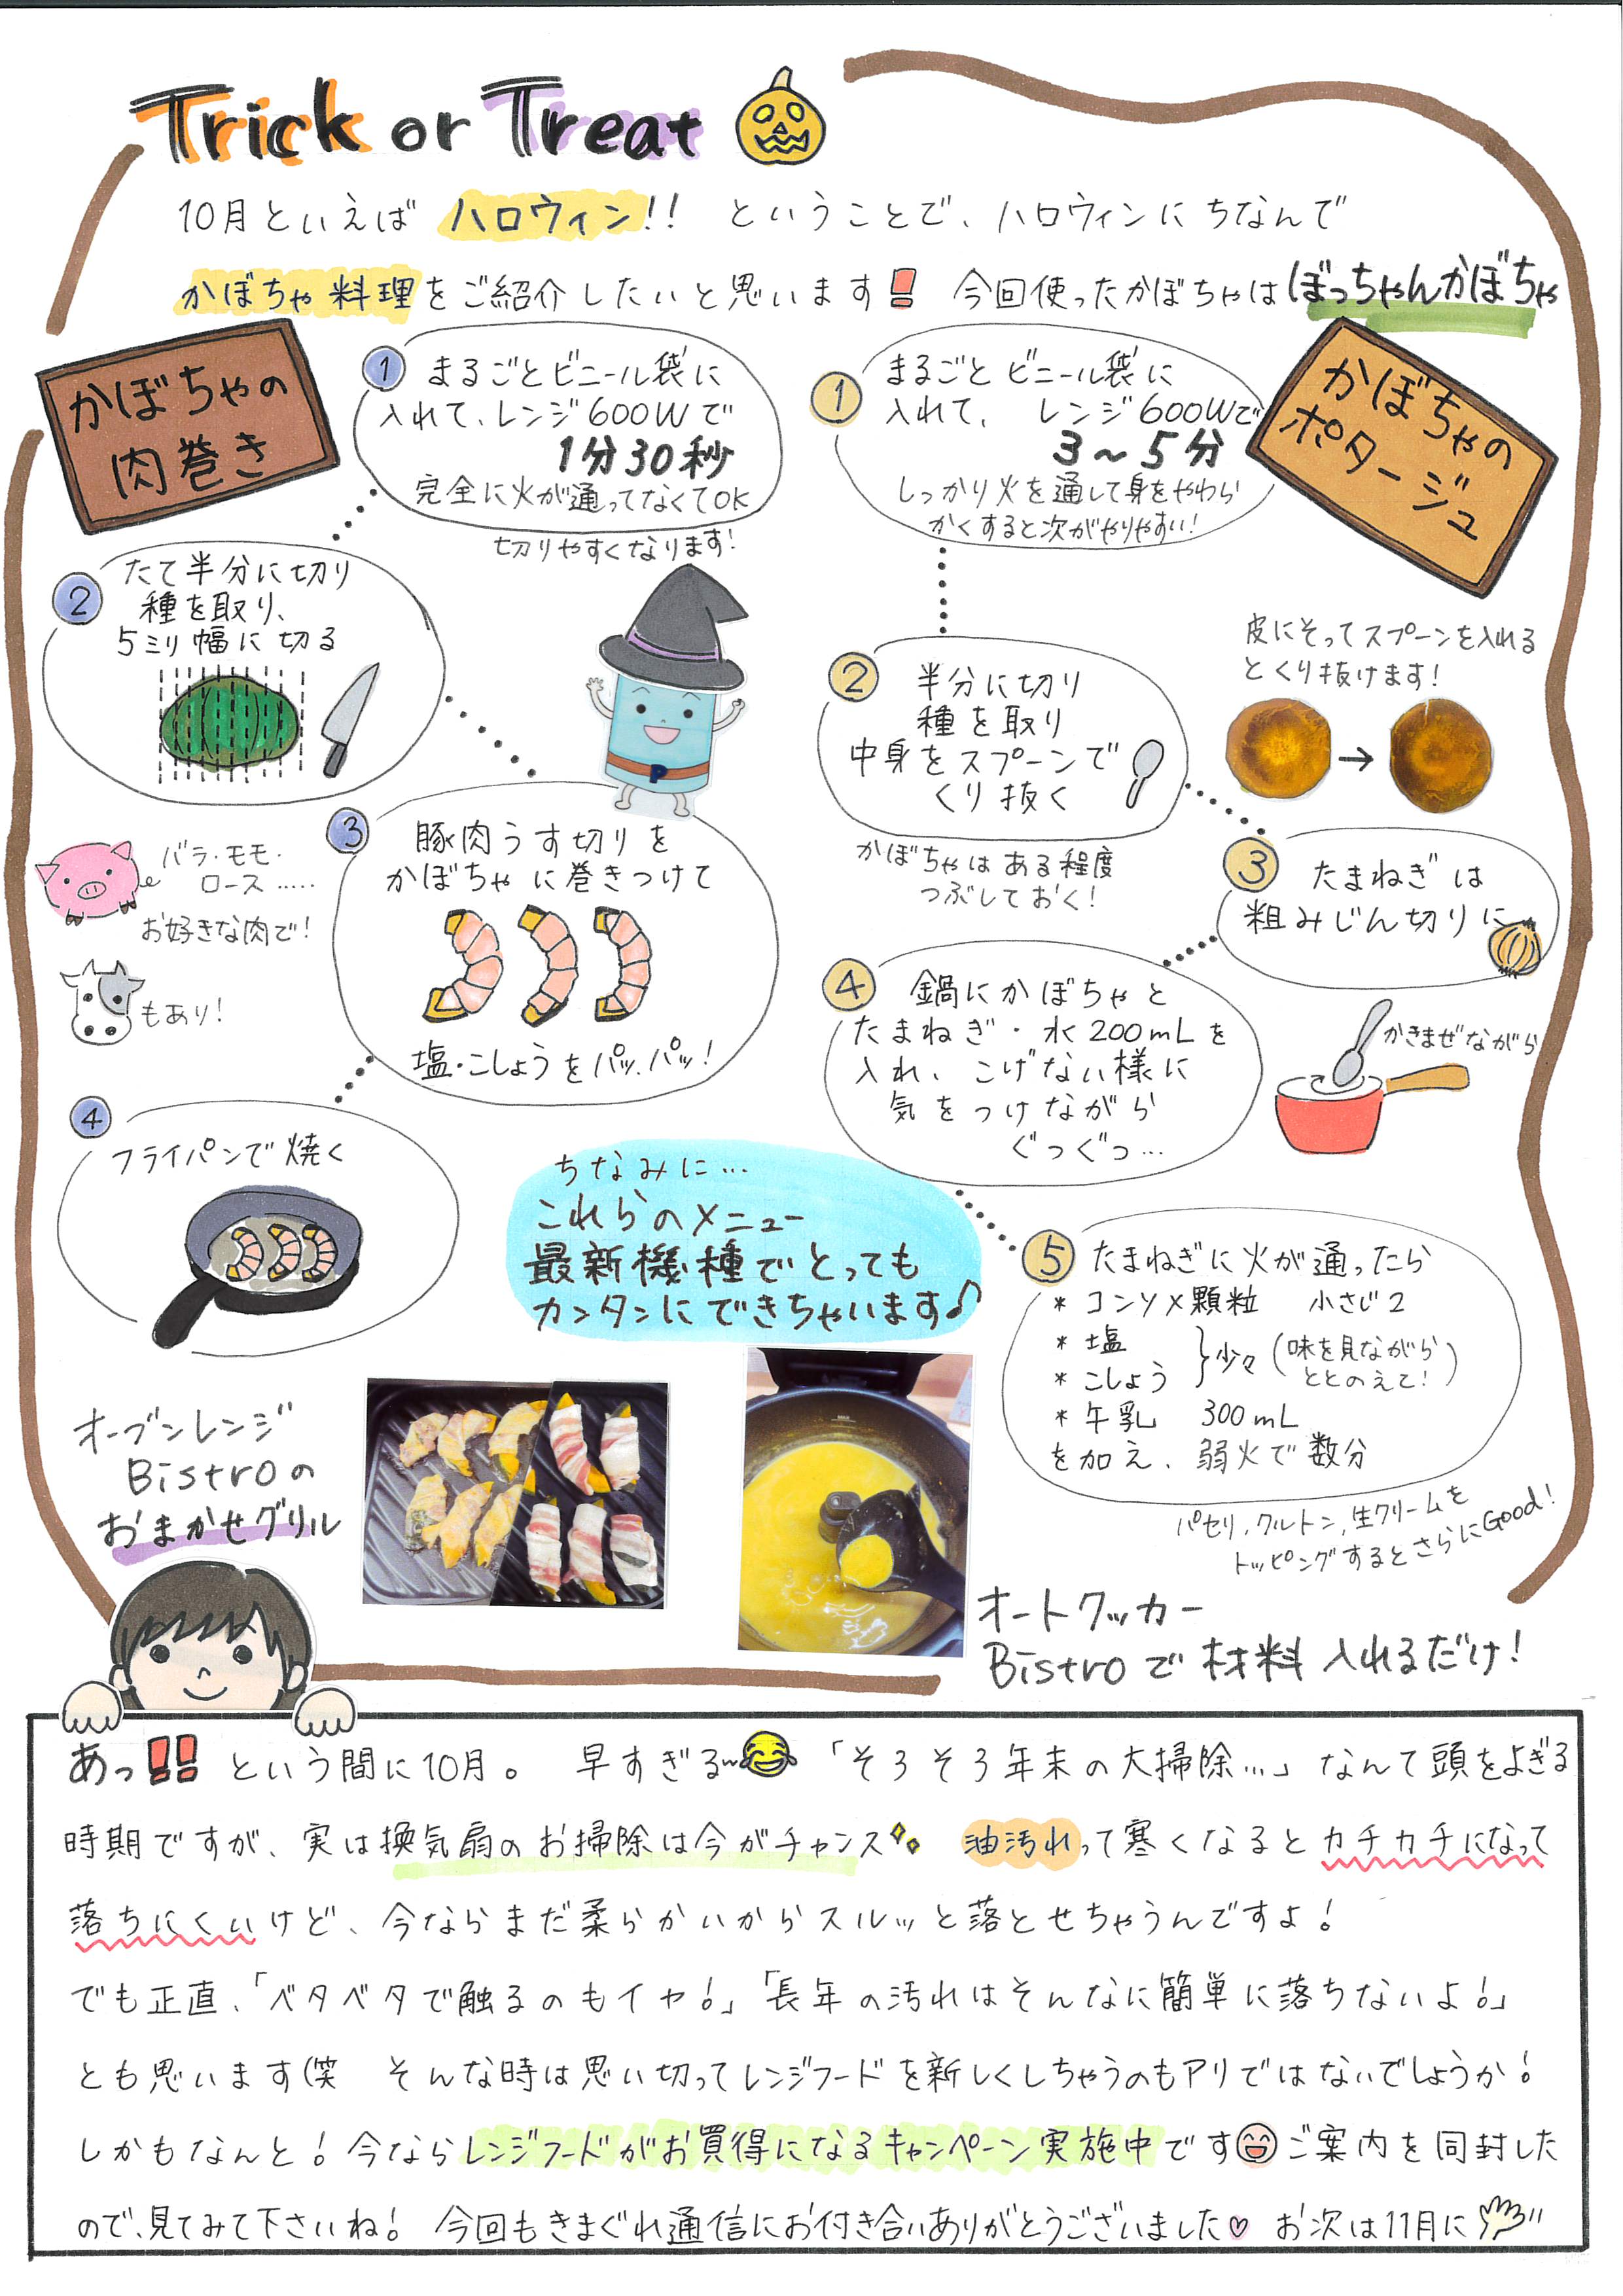 Trick or Treat
10月といえば ハロウィン!! ということで、ハロウィンにちなんで
かぼちゃ料理をご紹介したいと思います! 今回使ったかぼちゃはぼっちゃんかぼちゃ
かぼちゃの
肉巻き
1 まるごとビニール袋に
入れて、レンジ600Wで
1分30秒
完全に火が通ってなくてOK
切りやすくなります!
2 たて半分に切り
種を取り、
5ミリ幅に切る
P
3 豚肉うす切りを
かぼちゃに巻きつけて
塩・こしょうをパッ、パッ!
バラ・モモ・
ロース……
お好きな肉で!
もあり!
4 フライパンで焼く
かぼちゃの
ポタージュ
1 まるごとビニール袋に
入れて、レンジ600Wで
3〜5分
しっかり火を通して身をやわら
かくすると次がやりやすい!
2 半分に切り
種を取り
中身をスプーンで
くり抜く
皮にそってスプーンを入れる
とくり抜けます!
かぼちゃはある程度
つぶしておく!
3 たまねぎは
粗みじん切りに
4 鍋にかぼちゃと
たまねぎ・水200mLを
入れ、こげない様に
気をつけながら
ぐつぐつ…
かきまぜながら
5 たまねぎに火が通ったら
* コンソメ顆粒 小さじ2
* 塩
* こしょう }少々(味を見ながら
ととのえて!)
* 牛乳 300mL
を加え、弱火で数分
パセリ、クルトン、生クリームを
トッピングするとさらにGood!
ちなみに…
これらのメニュー
最新機種でとっても
カンタンにできちゃいます♪
オーブンレンジ
Bistroの
おまかせグリル
オートクッカー
Bistroで材料入れるだけ!
あっ!!という間に10月。 早すぎる~ 「そろそろ年末の大掃除…」なんて頭をよぎる
時期ですが、実は換気扇のお掃除は今がチャンス 油汚れって寒くなるとカチカチになって
落ちにくいけど、今ならまだ柔らかいからスルッと落とせちゃうんですよ!
でも正直、「ベタベタで触るのもイヤ!」「長年の汚れはそんなに簡単に落ちないよ!」
とも思います(笑 そんな時は思い切ってレンジフードを新しくしちゃうのもアリではないでしょうか!
しかもなんと!今ならレンジフードがお買得になるキャンペーン実施中です ご案内を同封した
ので、見てみて下さいね! 今回もきまぐれ通信にお付き合いありがとうございました♡ お次は11月に